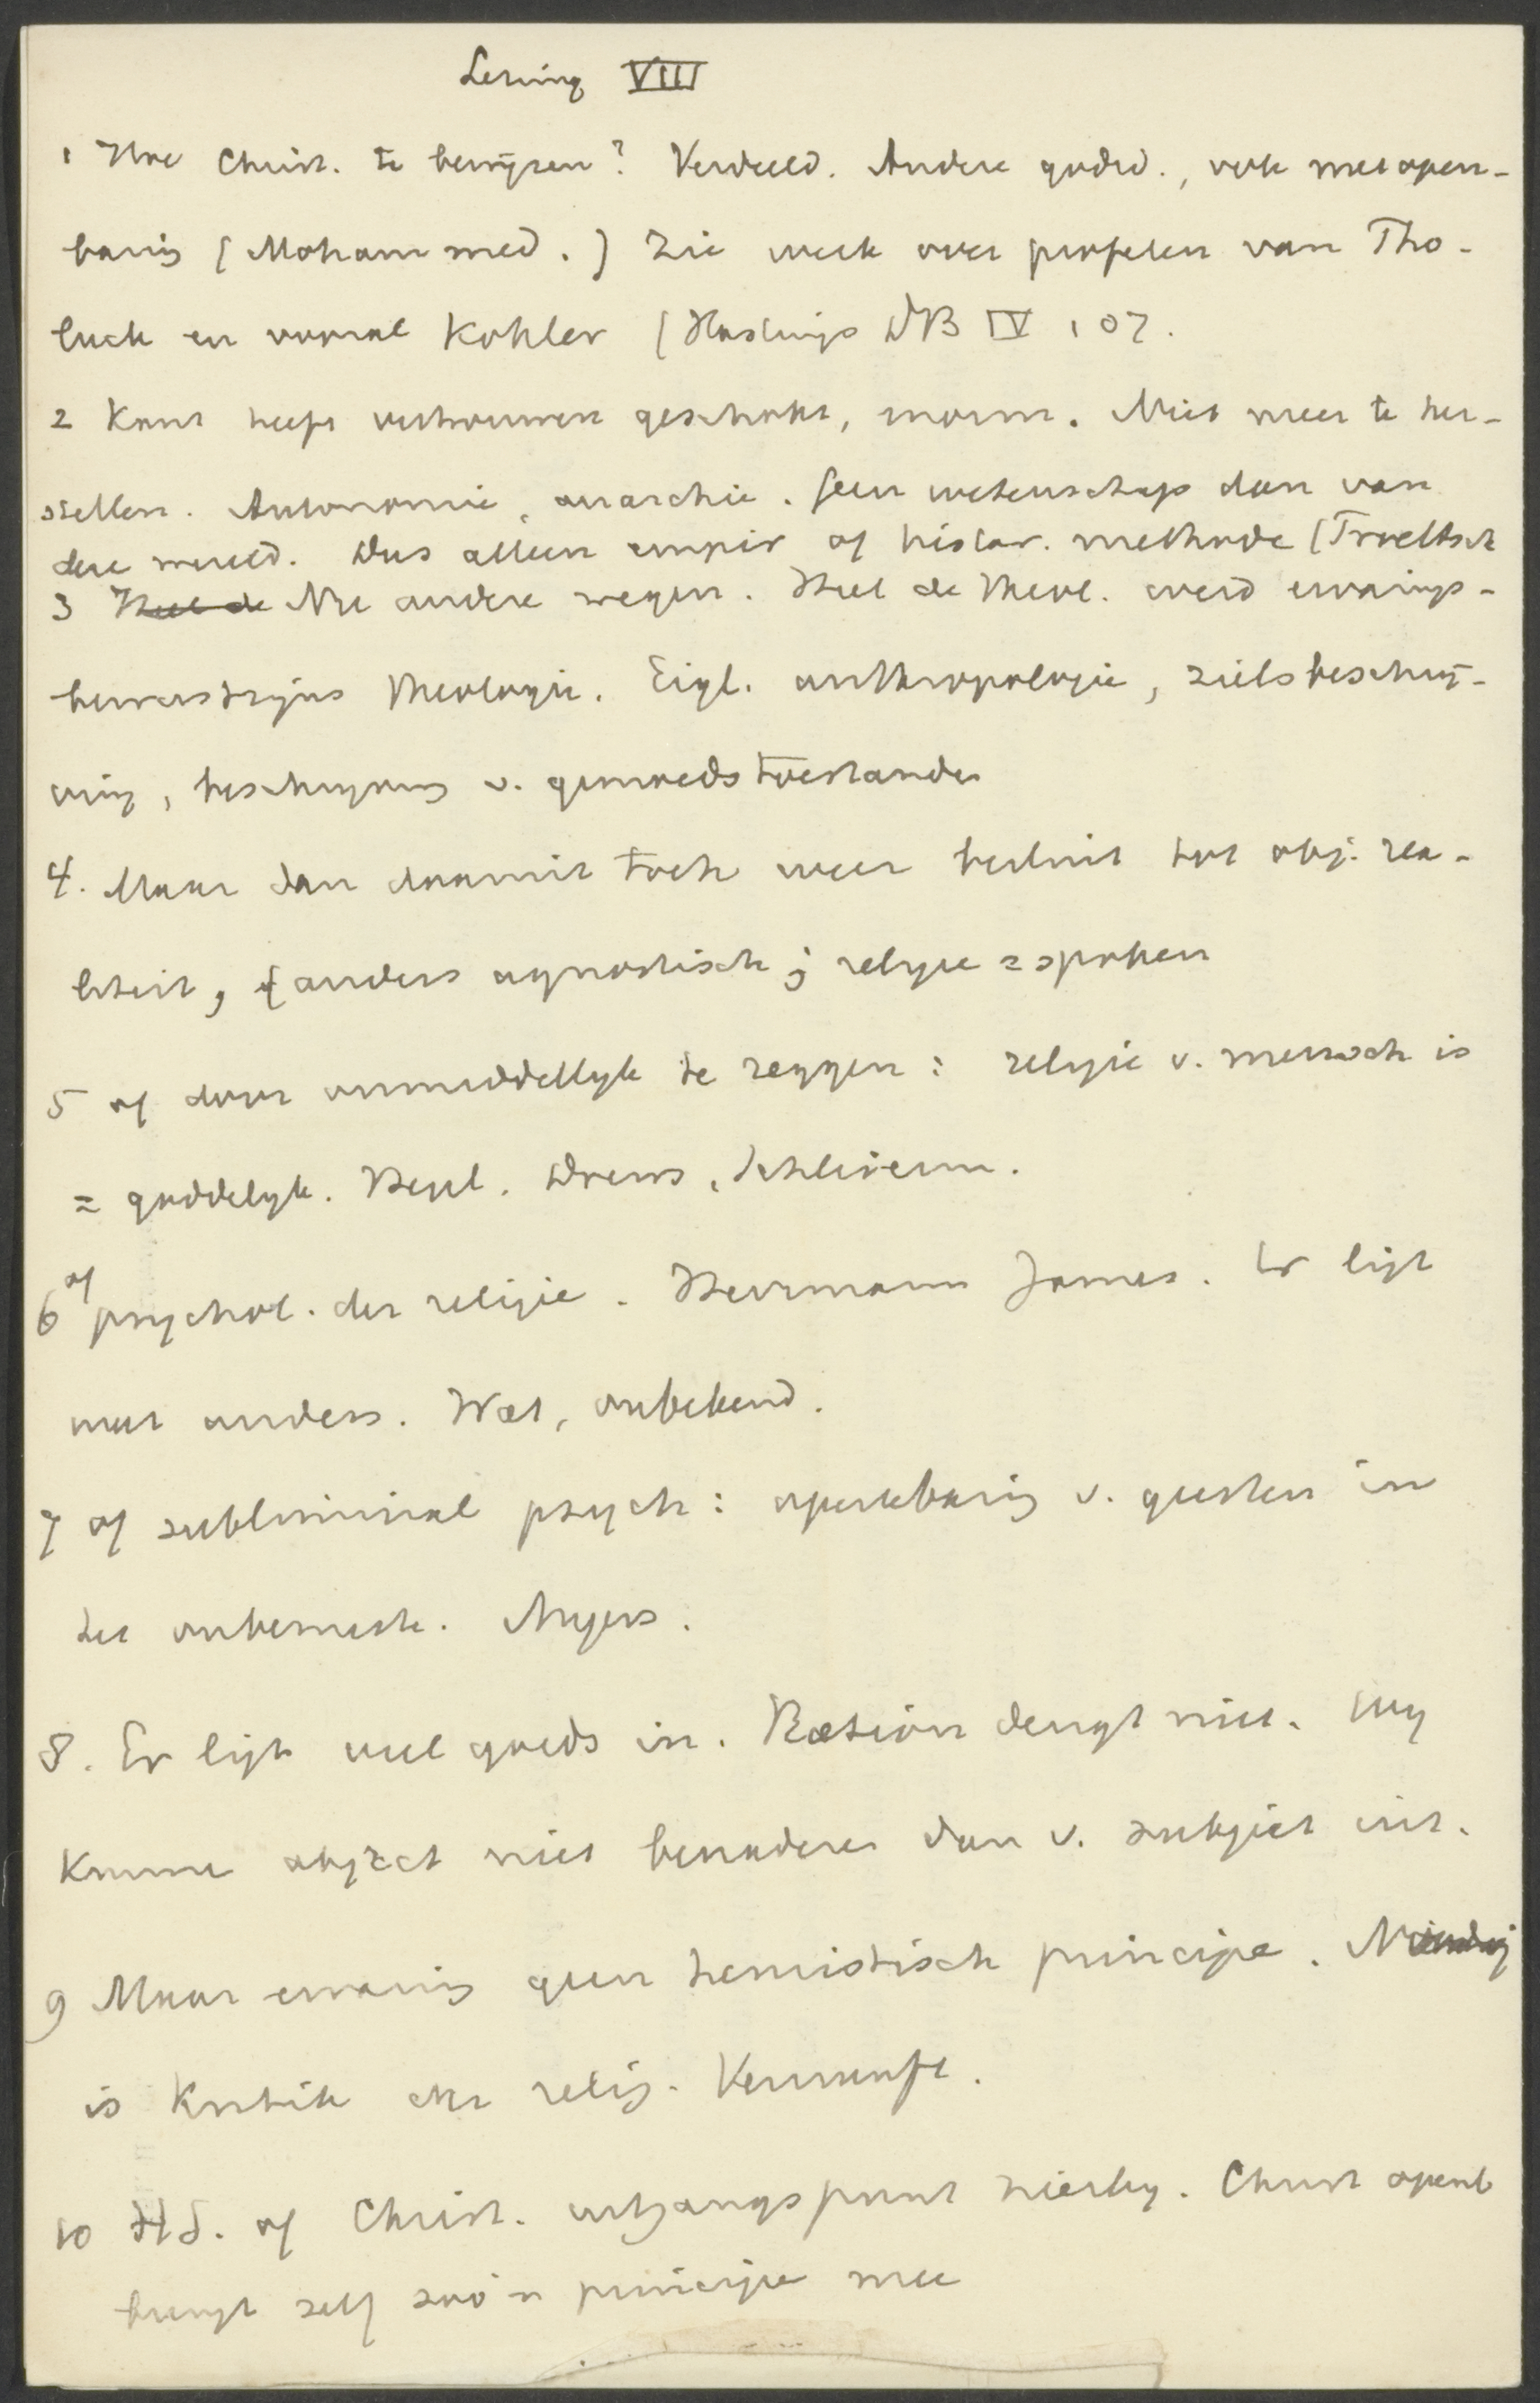 Lezing VIII
1 Hoe Christ. te bewijzen? Verdeeld. Andere godsd., ook met open-
baring (Mohammed.) Zie werk over profeten van Tho-
luck en vooral Kohler (Hastings DB IV 107.
2 Kant heeft vertrouwen geschokt, enorm. Niet meer te her-
stellen. Autonomie, anarchie. Geen wetenschap dan van
deze wereld. Dus alleen empir of histor. methode (Troeltsch
3 Heel de Nu andere wegen. Heel de theol. werd ervarings-
bewustzijns theologie. Eigl. anthropologie, zielsbeschrij-
ving, beschrijving v. gemoedstoestanden
4. Maar dan daaruit toch weer besluit tot obj. rea-
liteit, anders agnostisch; religie = spoken
5 of door onmiddellyk te zeggen: religie v. mensch is
= goddelyk. Hegel. Drews, Schleierm.
6 of psychol. der religie. Herrmann James. Er ligt
wat anders. Wat, onbekend.
7 of subliminal psych: openbaring v. geesten in
het onbewuste. Myers.
8. Er ligt veel goeds in. Ration deugt niet. Wy
kunnen object niet benaderen dan v. subject uit.
9 Maar ervaring geen heuristisch principe. Noodig
is Kritik der relig. Vernunft.
10 HS. of Christ. uitgangspunt hierby. Christ openb
brengt zelf zoo'n principe mee